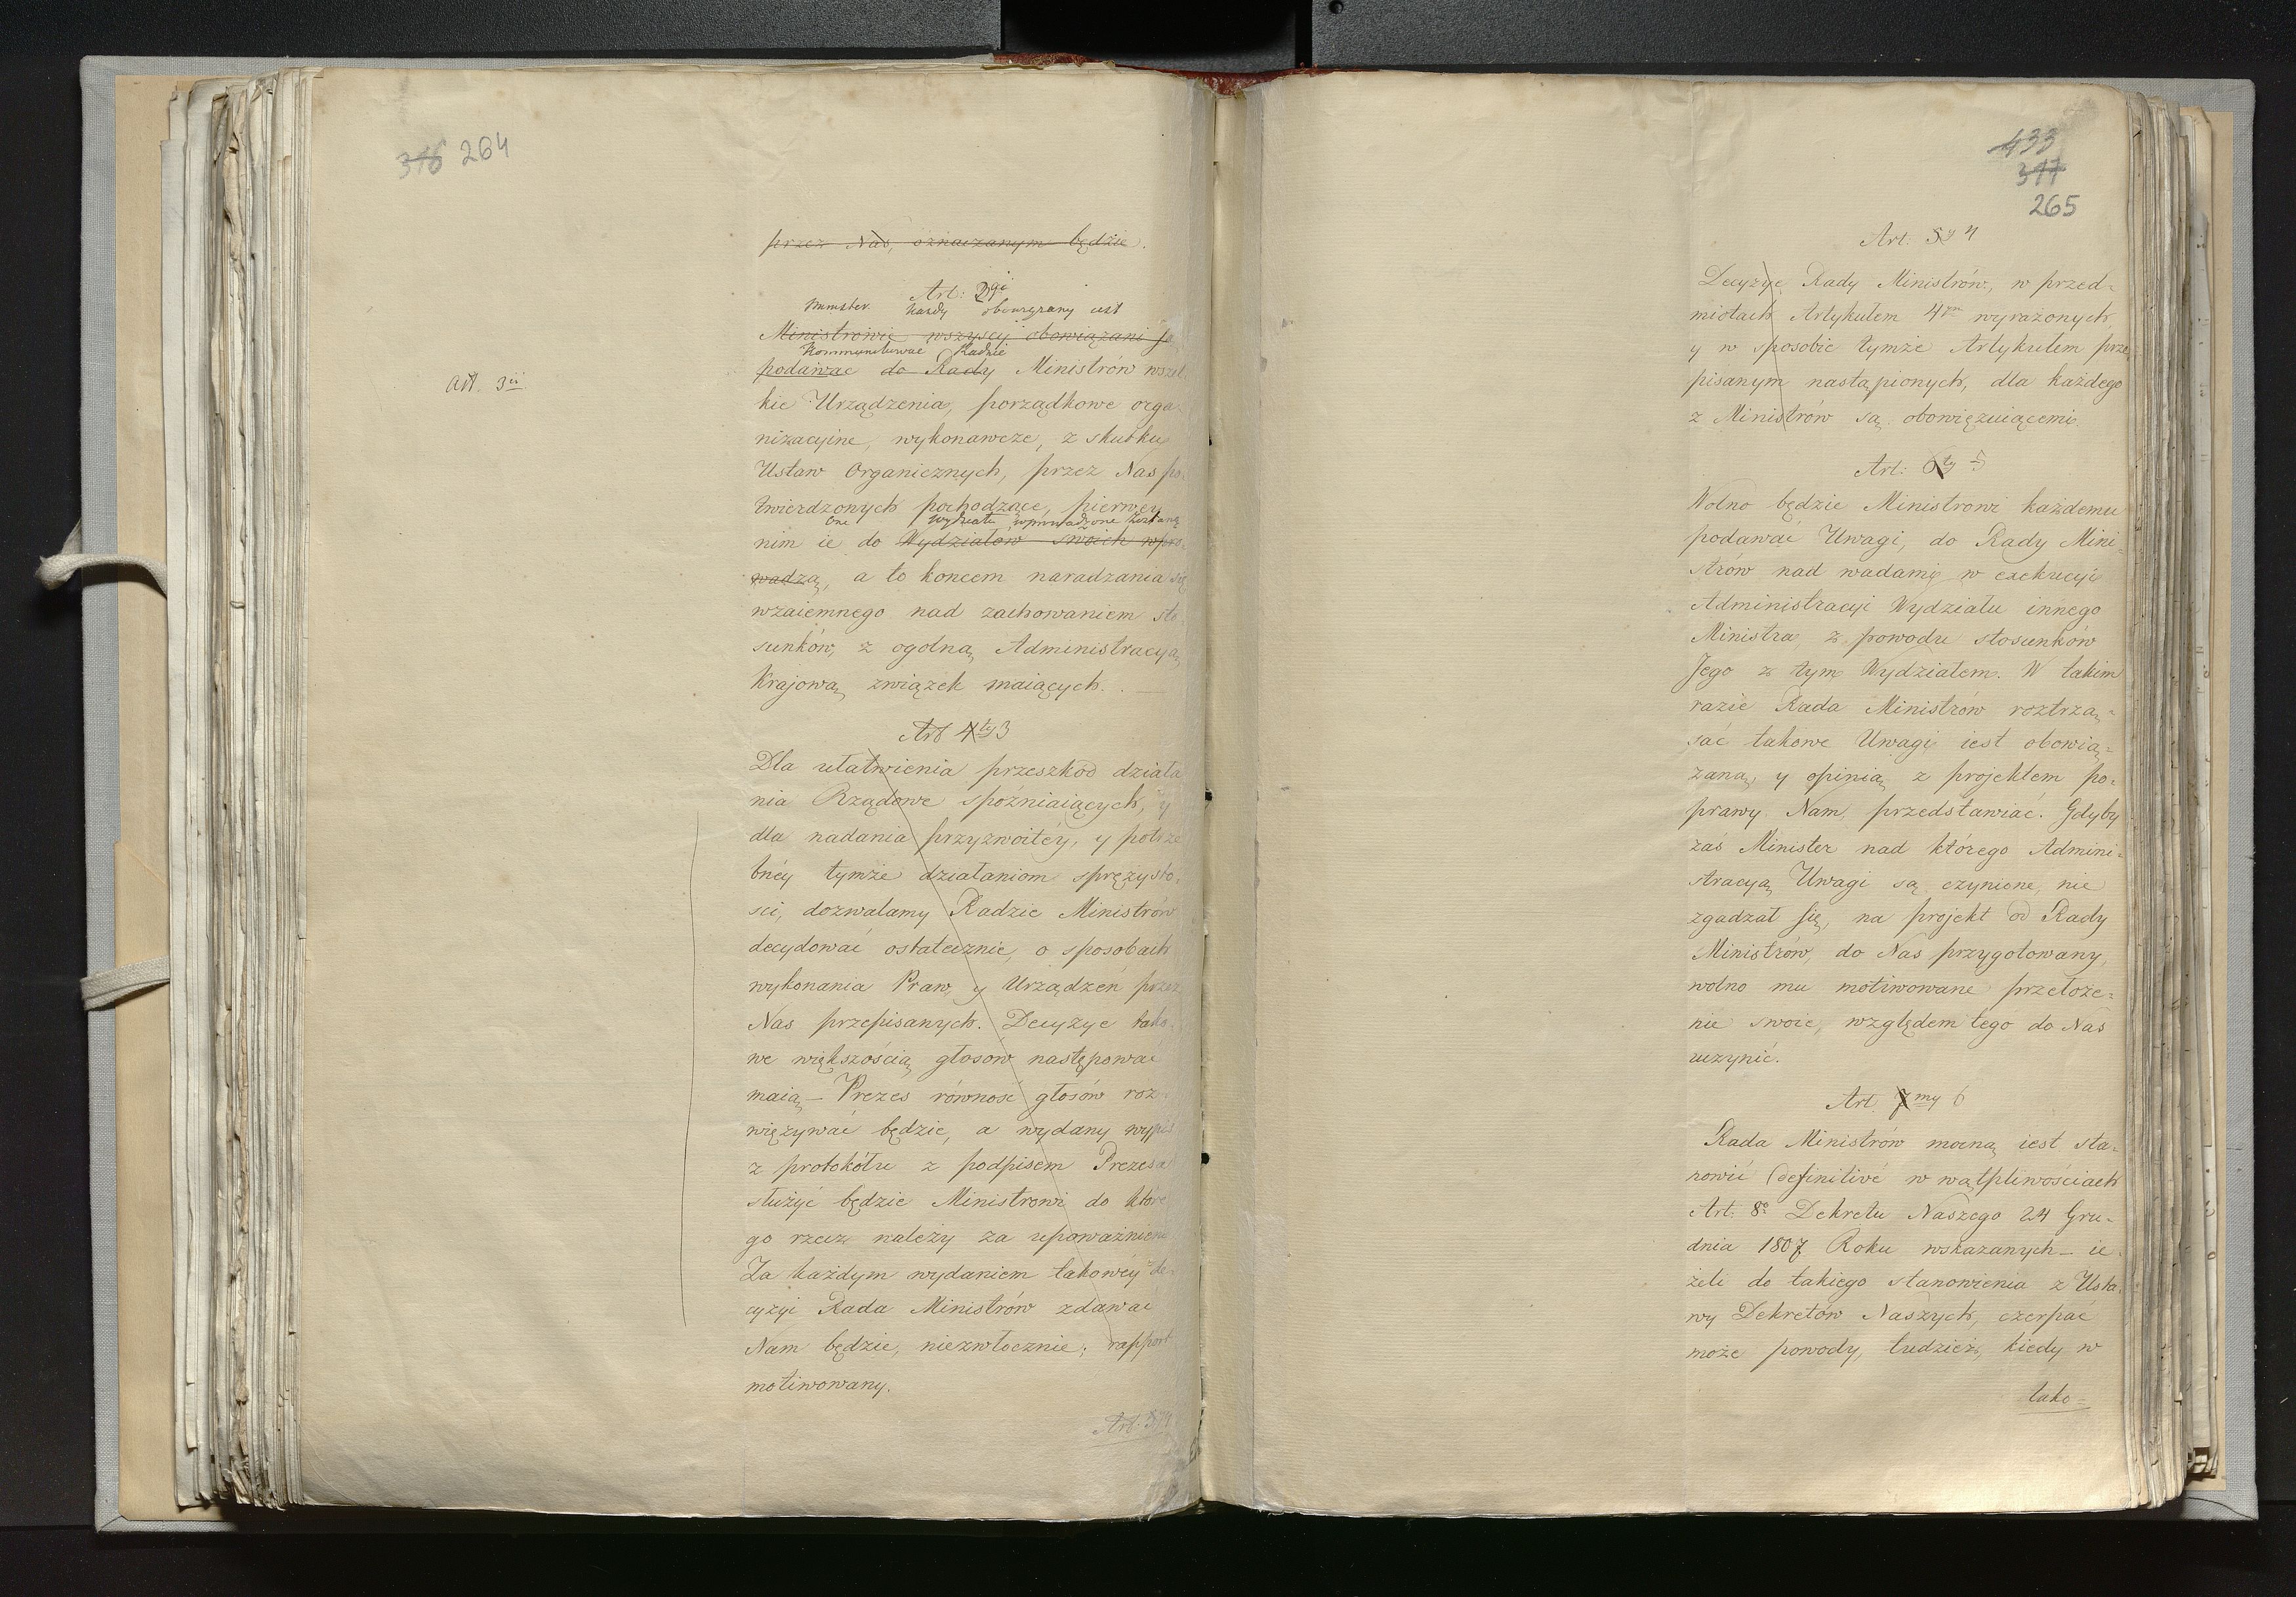 316 264
przez Nas, oznaczanym będzie.
Art: 2gi
Minister każdy obowiązany iest
Ministrowie wszyscy obowiązani są
Kommunikować Radzie
podawać do Rady Ministrów wszel
Art. 3ci
kie Urządzenia, porządkowe orga
nizacyine, wykonawcze, z skutku
Ustaw Organicznych, przez Nas po
twierdzonych pochodzące, pierwey
one wydziału wprowadzone zostaną
nim ie do Wydziałów swoich wpro
wadzą, a to koncem naradzania się
wzaiemnego nad zachowaniem sto
sunków, z ogolną Administracyą
Krajową związek maiących. —
Art 4ty 3
Dla ułatwienia przeszkod działa
nia Rządowe spoźniaiących, y
dla nadania przyzwoitéy, y potrze
bnéy tymże działaniom spręzysto-
sci, dozwalamy Radzie Ministrów
decydować ostatecznie, o sposobach
wykonania Praw, y Urządzeń przez
Nas przepisanych. Decyzye tako-
we większością głosow następować
maią — Prezes równość głosów roz
więzywać będzie, a wydany wypis
z protokółu z podpisem Prezesa
służyć będzie Ministrowi do które
go rzecz należy za upoważnienie
Za każdym wydaniem takowéy de-
cyzyi Rada Ministrów zdawać
Nam będzie, niezwłocznie, rapport
motiwowany.
Art: 5ty
433
317
265
Art: 5ty 4
Decyzye Rady Ministrów, w przed-
miotach Artykułem 4ym wyrażonych,
y w sposobie tymże Artykułem prze
pisanym nastąpionych, dla każdego
z Ministrów są obowięzuiącemi.
Art: 6ty 5
Wolno będzie Ministrowi każdemu
podawać Uwagi, do Rady Mini-
strów nad wadami w exekucyi
Administracyi Wydziału innego
Ministra, z powodu stosunków
Jego z tym Wydziałem. W takim
razie Rada Ministrów roztrzą-
sać takowe Uwagi iest obowią-
zaną, y opinią z projektem po-
prawy Nam, przedstawiać. Gdyby
zaś Minister nad którego Admini-
stracyą Uwagi są czynione, nie
zgadzał się, na projekt od Rady
Ministrów, do Nas przygotowany,
wolno mu motiwowane przełoże-
nie swoie, względem tego do Nas
uczynić.
Art. 7my 6
Rada Ministrów mocną iest sta-
nowić definitivé w wątpliwościach
Art: 8o Dekretu Naszego 24 Gru-
dnia 1807 Roku wskazanych — ie
żeli do takiego stanowienia z Usta-
wy Dekretów Naszych, czerpać
może powody, tudzież, kiedy w
tako=